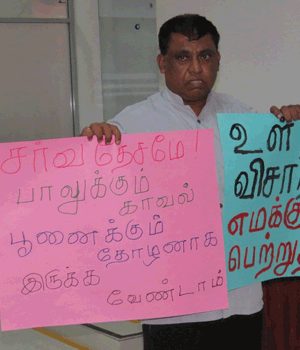 சர்வதேசமே!
பாலுக்கும்
காவல்
பூனைக்கும்
தோழனாக
இருக்க
வேண்டாம்
உள்
விசா
எமக்கு
பெற்று